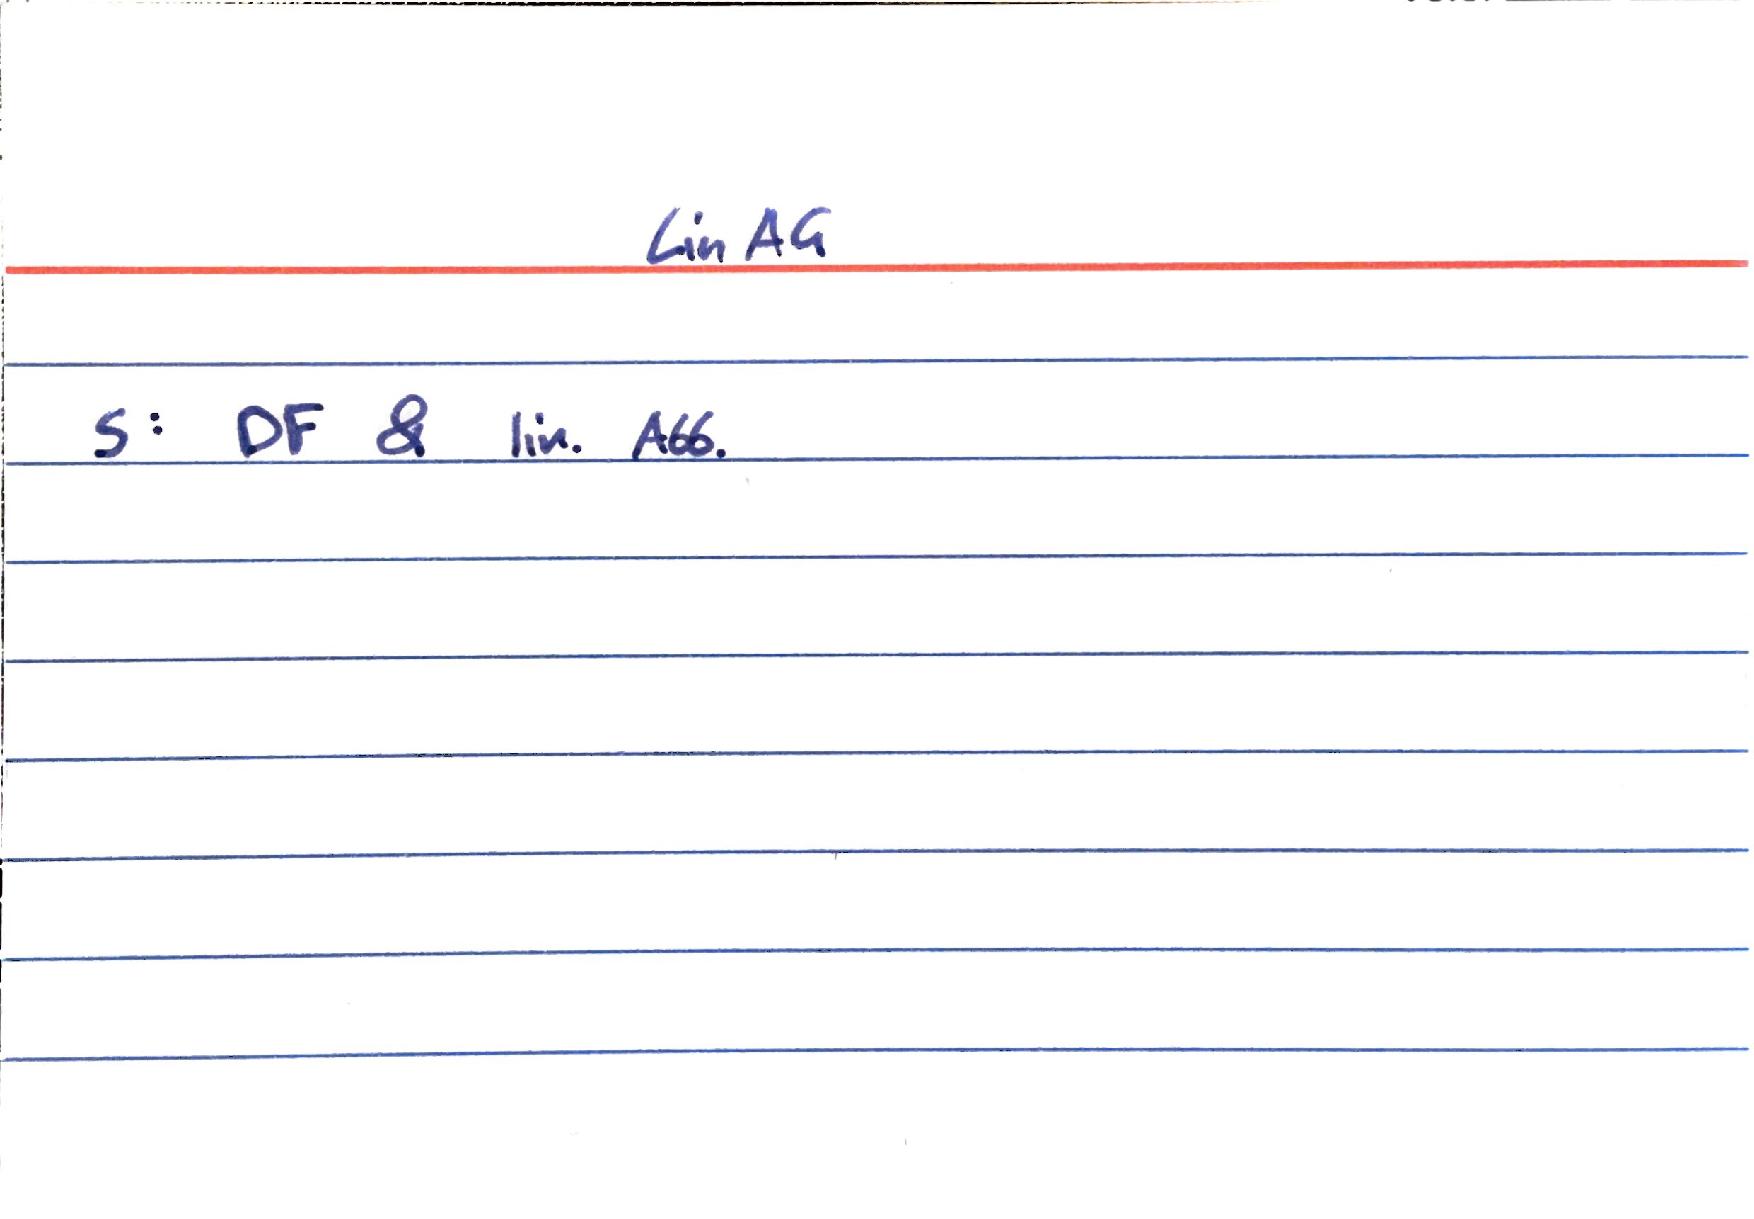 Lin AG
S: DF & lin. Abb.